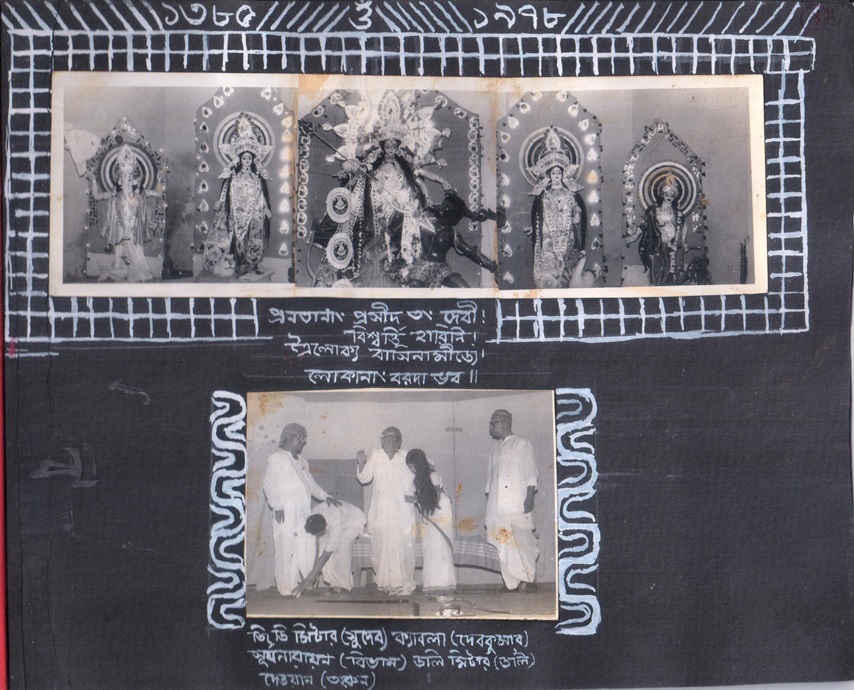 ১৩৮৫ ওঁ ১৯৭৮
প্রনতানাং প্রসীদ ত্বং দেবী!
বিশ্বার্ত্তি হারিনি!
ত্রৈলোক্য বাসিনামীড্যে!
লোকানাং বরদা ভব॥
ডি, ডি মিটার (সুদেব) ক্যাবলা (দেবকুমার)
সূর্যনারায়ন (বিভাস) ডলি মিটার (ডলি)
দেওয়ান (অরুন)